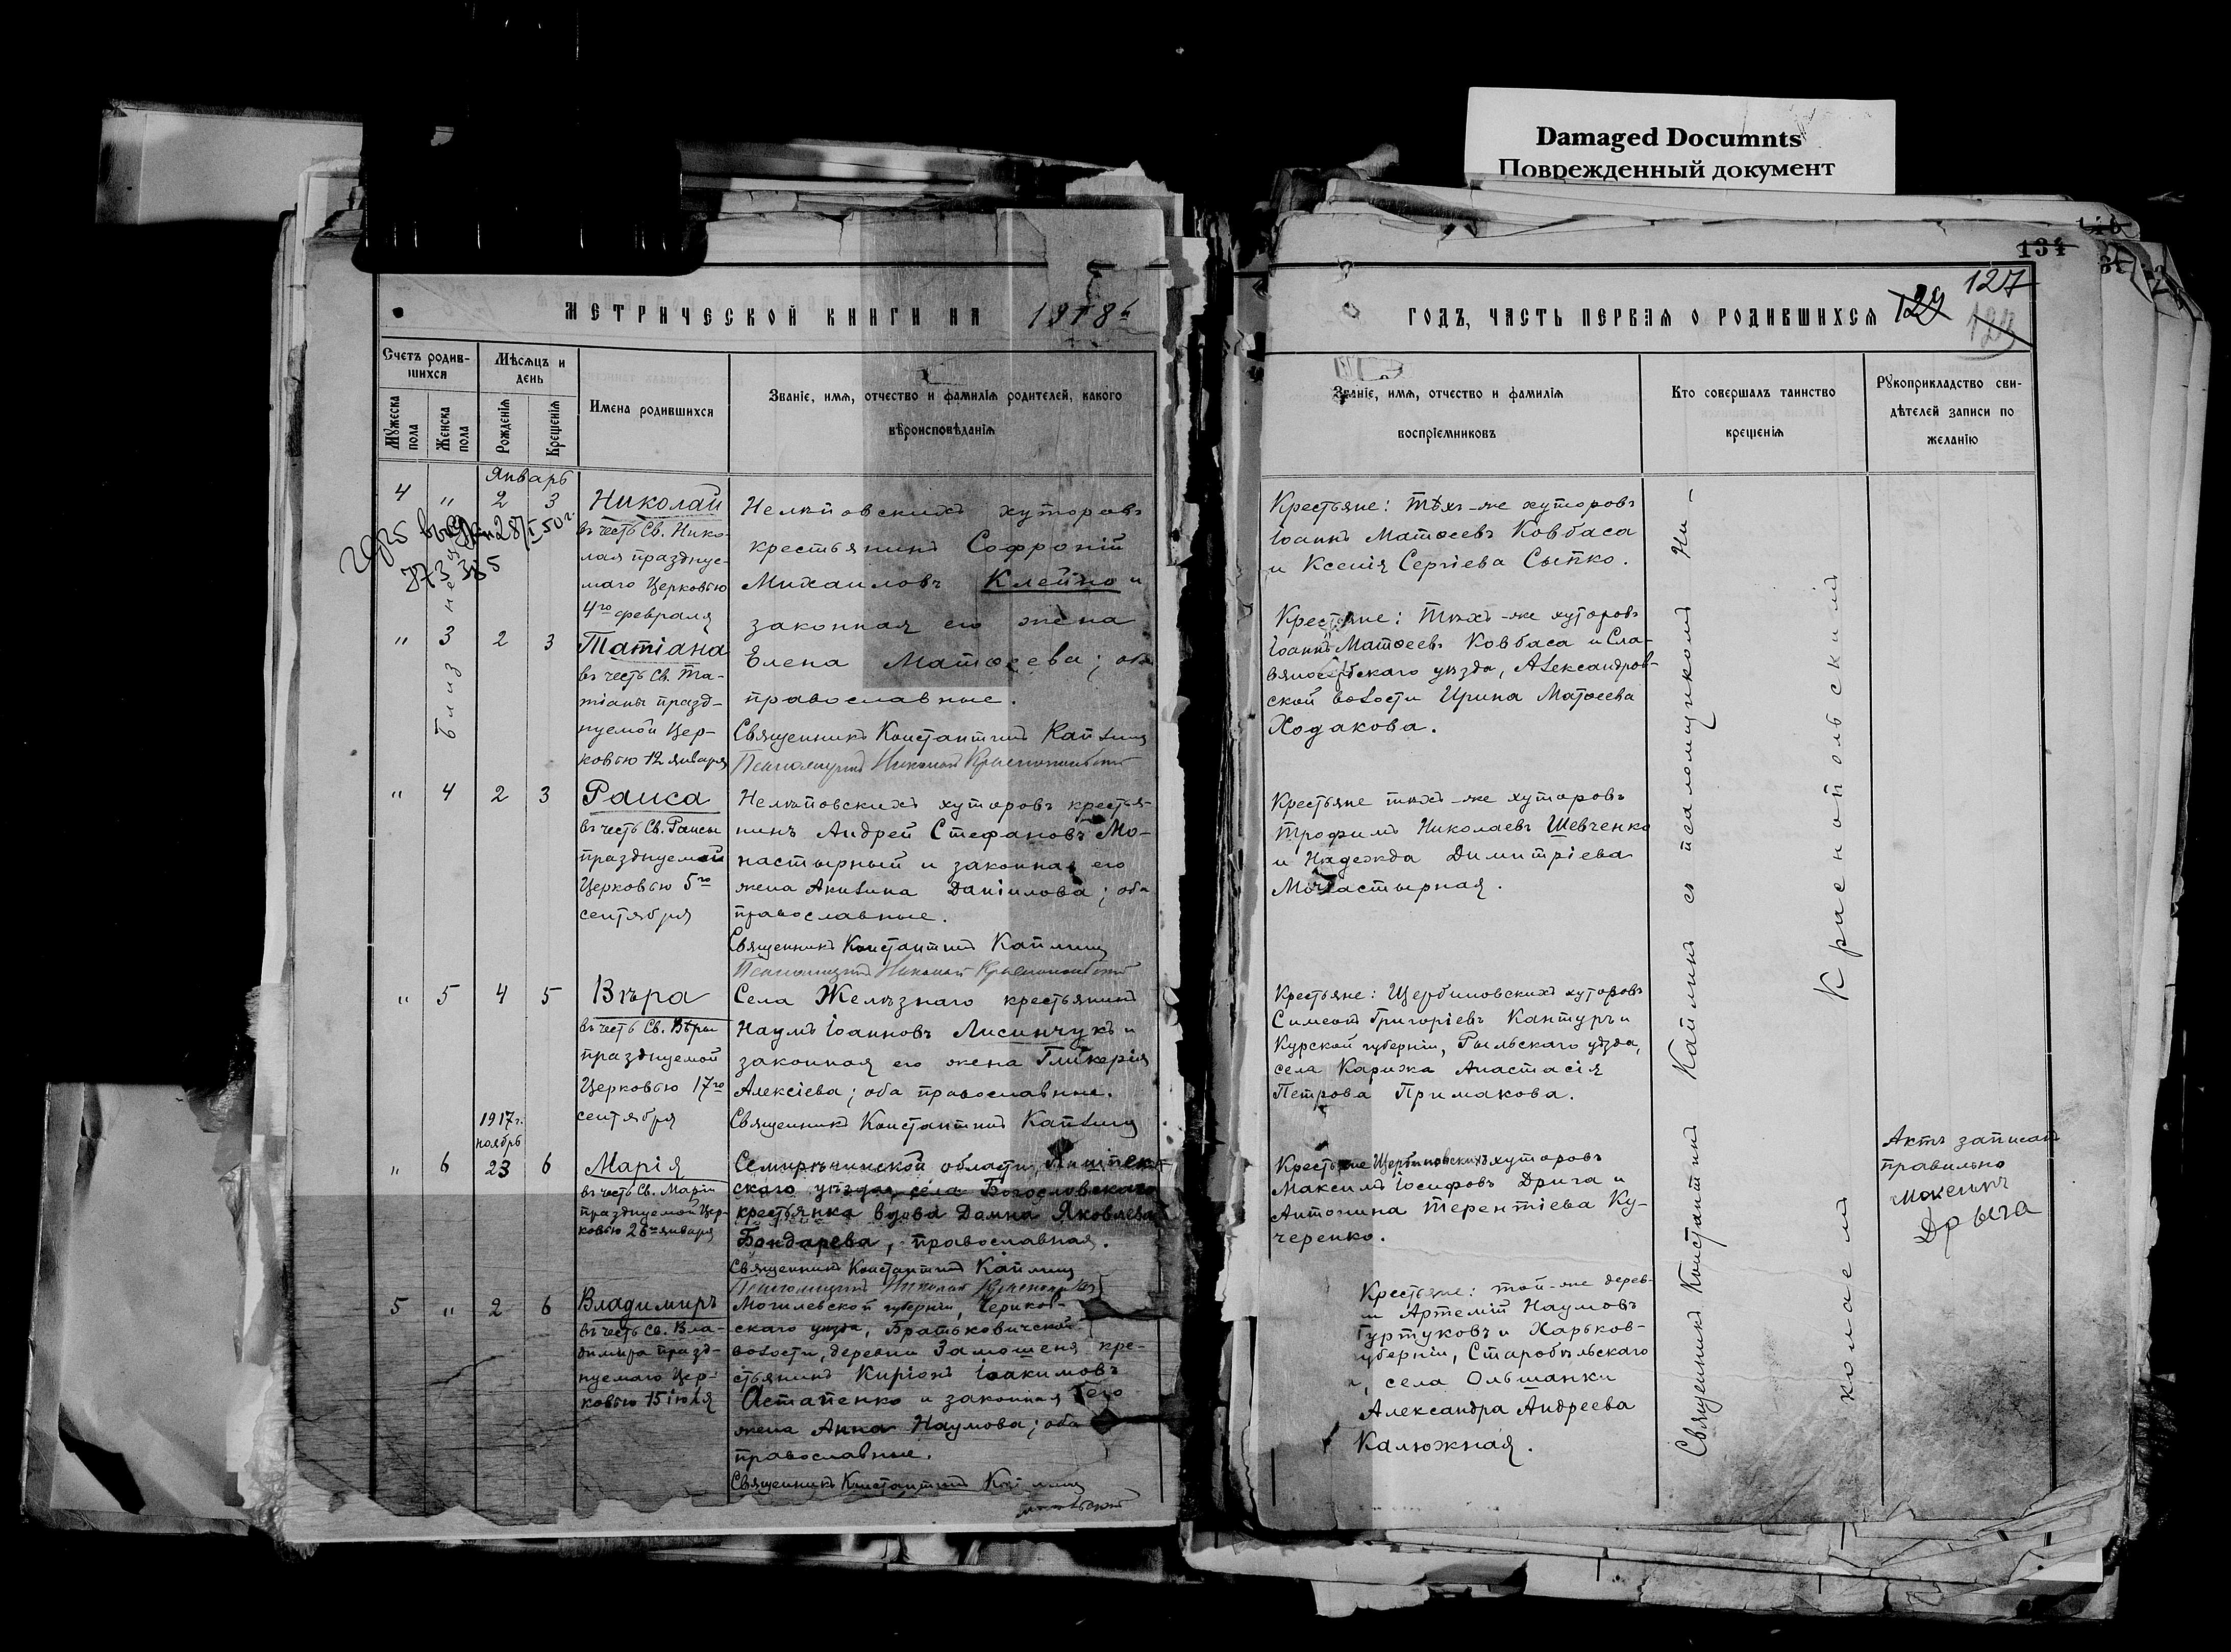 Damaged Documnts
Поврежденный документ
134
127
129
МЕТРИЧЕСКОЙ КНИГИ НА 1918й
ГОДЪ, ЧАСТЬ ПЕРВАЯ О РОДИВШИХСЯ
Счетъ родив-
шихся
Мѣсяцъ и
день
Мужеска пола
Женска пола
Рожденія
Крещенія
Имена родившихся
Званіе, имя, отчество и фамилія родителей, какого
вѣроисповѣданія
Званіе, имя, отчество и фамилія
воспріемниковъ
Кто совершалъ таинство
крещенія
Рукоприкладство сви-
дѣтелей записи по
желанію
Январь
4 " 2 3
Николай
въ честь Св. Нико-
лая празднуе-
маго Церковью
4го февраля
близнецы
" 3 2 3
Татіана
въ честь Св. Та-
тіаны празд-
нуемой Цер-
ковью 12 января
Нелѣповскихъ хуторовъ
крестьянинъ Софроній
Михаиловъ Клейно и
законная его жена
Елена Матѳеева; оба
православные.
Священникъ Константинъ Каплинъ
Псаломщикъ Николай Краснопольскій
Крестьяне: Тѣхъ-же хуторовъ
Іоаннъ Матѳеевъ Ковбаса
и Ксенія Сергіева Сыпко.
Крестьяне: Тѣхъ-же хуторовъ
Іоаннъ Матѳеевъ Ковбаса и Сла-
вяносербскаго уѣзда, Александров-
ской волости Ирина Матѳеева
Ходакова.
" 4 2 3
Раиса
въ честь Св. Раисы
празднуемой
Церковью 5го
сентября
Нелѣповскихъ хуторовъ крестья-
нинъ Андрей Стефановъ Мо-
настырный и законная его
жена Акилина Даніилова; оба
православные.
Священникъ Константинъ Каплинъ
Псаломщикъ Николай Краснопольскій
Крестьяне тѣхъ-же хуторовъ
Трофимъ Николаевъ Шевченко
и Надежда Димитріева
Монастырная.
" 5 4 5
Вѣра
въ честь Св. Вѣры
празднуемой
Церковью 17го
сентября
Села Желѣзнаго крестьянинъ
Наумъ Іоанновъ Лисинчукъ и
законная его жена Гликерія
Алексіева; оба православные.
Священникъ Константинъ Каплинъ
Крестьяне: Щербиновскихъ хуторовъ
Симеонъ Григоріевъ Кантуръ и
Курской губерніи, Рыльскаго уѣзда,
села Карижа Анастасія
Петрова Примакова.
1917г.
ноябрь
" 6 23 6
Марія
въ честь Св. Маріи
празднуемой Цер-
ковью 26го января
Семирѣчинской области, Пишпек-
скаго уѣзда, села Богословскаго
крестьянка вдова Домна Яковлева
Бондарева, православная.
Священникъ Константинъ Каплинъ
Псаломщикъ Николай Краснопольскій
Крестьяне Щербиновскихъ хуторовъ
Максимъ Іосифовъ Дрига и
Антонина Терентіева Ку-
черенко.
Актъ записанъ
правильно
Максимъ
Дрыга
5 " 2 6
Владимиръ
въ честь Св. Вла-
димира празд-
нуемаго Цер-
ковью 15 іюля
Могилевской губерніи, Чериков-
скаго уѣзда, Братьковичской
волости, деревни Замошеня кре-
стьянинъ Киріонъ Іоакимовъ
Астапенко и законная его
жена Анна Наумова; оба
православные.
Священникъ Константинъ Каплинъ
Крестьяне: той-же дерев-
и Артемій Наумовъ
Гуртуковъ и Харьков-
губерніи, Старобѣльскаго
села Ольшанки
Александра Андреева
Калюжная.
Священникъ Константинъ Каплинъ съ псаломщикомъ Ни-
колаемъ Краснопольскимъ